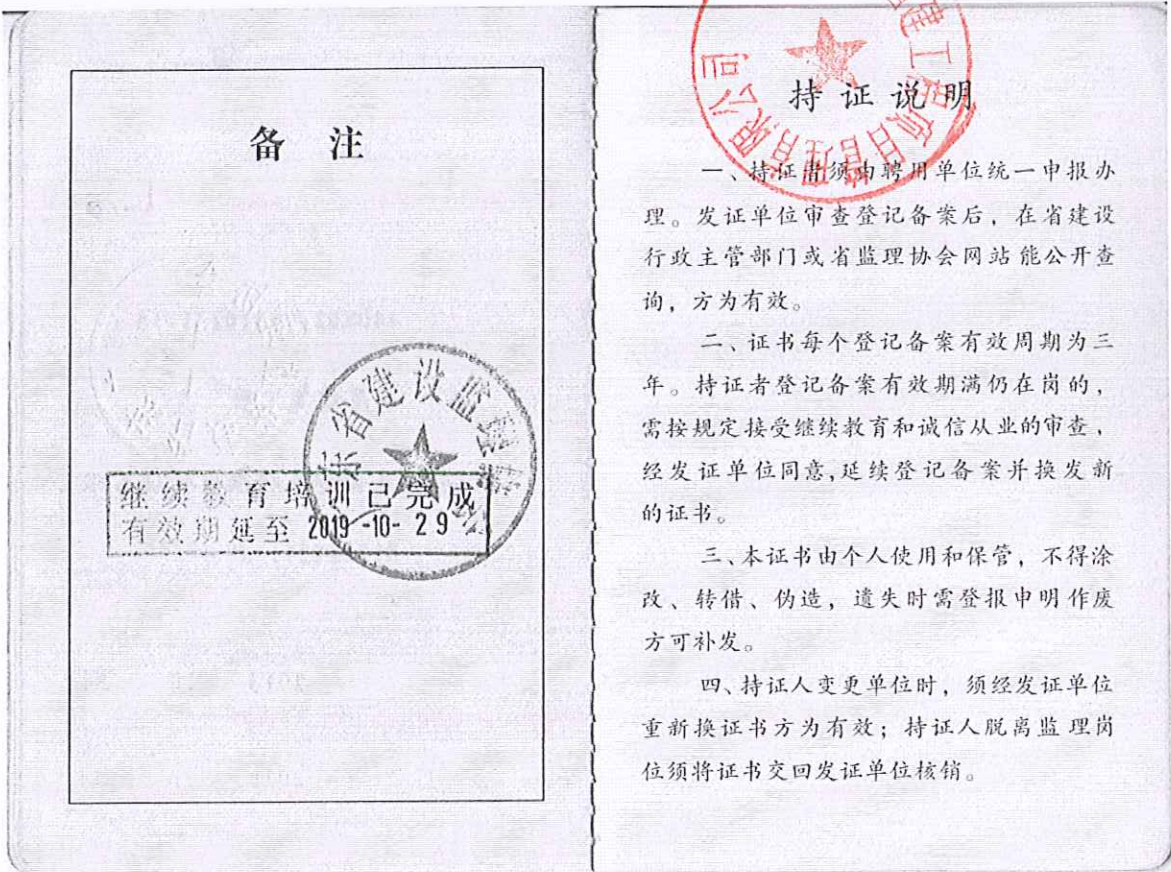 备 注
省建设监理
继续教育培训已完成
有效期延至 2019-10-29
建工程项目管理有限公司
持证说明
一、持证者须由聘用单位统一申报办
理。发证单位审查登记备案后，在省建设
行政主管部门或省监理协会网站能公开查
询，方为有效。
二、证书每个登记备案有效周期为三
年。持证者登记备案有效期满仍在岗的，
需按规定接受继续教育和诚信从业的审查，
经发证单位同意,延续登记备案并换发新
的证书。
三、本证书由个人使用和保管，不得涂
改、转借、伪造，遗失时需登报申明作废
方可补发。
四、持证人变更单位时，须经发证单位
重新换证书方为有效；持证人脱离监理岗
位须将证书交回发证单位核销。